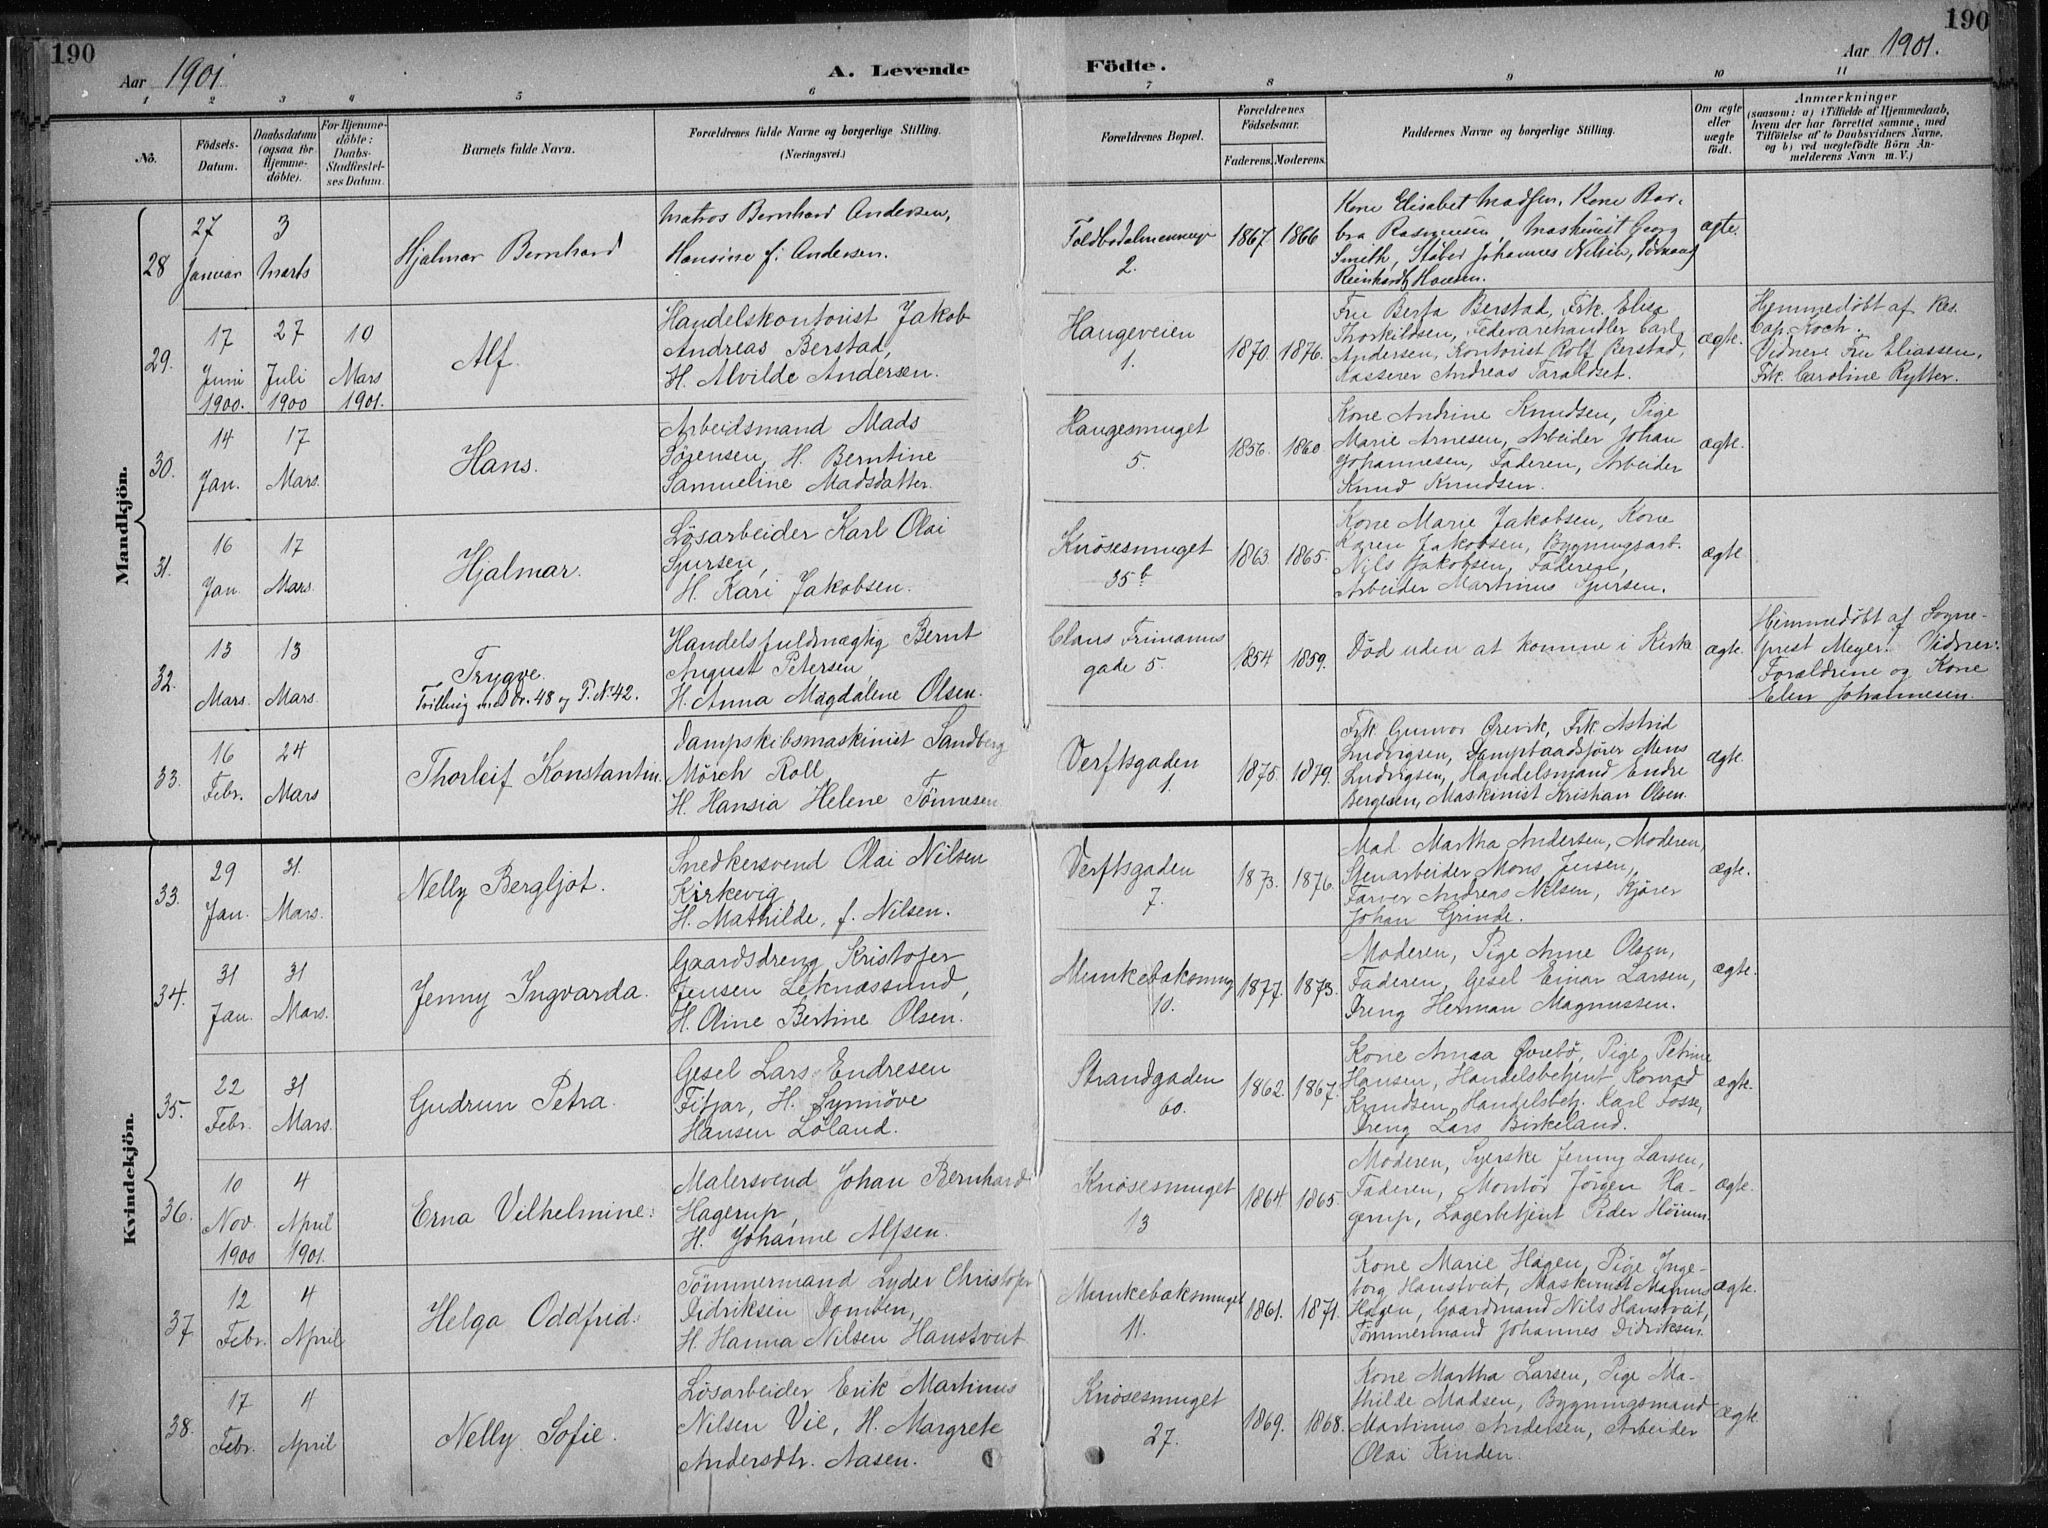 190
190
Aar 1901.
A. Levende Födte.
Aar 1901.
1 2 3 4 5 6 7 8 9 10 11
No.
Födsels-
Datum.
Daabsdatum
(ogsaa for
Hjemme-
döbte).
For Hjemme-
döbte:
Daabs-
Stadfæstel-
ses Datum.
Barnets fulde Navn.
Forældrenes fulde Navne og borgerlige Stilling.
(Næringsvei.)
Forældrenes Bopæl.
Forældrenes
Födselsaar.
Faderens. Moderens.
Faddernes Navne og borgerlige Stilling.
Om ægte
eller
uægte
födt.
Anmærkninger
(saasom: a) i Tilfælde af Hjemmedaab,
hvem der har forrettet samme, med
Tilföielse af to Daabsvidners Navne,
og b) ved uægtefödte Börn An-
melderens Navn m. V.)
Mandkjön.
28
27
Januar
3
Marts
Hjalmar Bernhard
Matros Bernhard Andersen,
Hansine f. Andersen.
Toldbodalmenning
2.
1867. 1866
Kone Elisabet Madsen, Kone Bar-
bra Rasmussen, Maskinist Georg
Smith, Støber Johannes Nilsen,
Reinhardt Hansen.
ægte.
29.
17
Juni
1900.
27
Juli
1900
10
Mars
1901.
Alf.
Handelskontorist Jakob
Andreas Berstad,
H. Alvilde Andersen.
Haugeveien
1.
1870. 1876.
Fru Berta Berstad, Frk. Elise
Thorkildsen, Fedevarehandler Carl
Andersen, Kontorist Rolf Berstad,
Kasserer Andreas Taraldset.
ægte.
Hjemmedøbt af Res.
Cap. Koch.
Vidner: Fru Eliassen,
Frk. Caroline Rytter.
30.
14
Jan.
17
Mars.
Hans.
Arbeidsmand Mads
Sørensen, H. Berntine
Samueline Madsdatter.
Haugesmuget
5.
1856. 1860.
Kone Andrine Knudsen, Pige
Marie Arnesen, Arbeider Johan
Johannesen, Faderen, Arbeider
Knud Knudsen.
ægte.
31.
16
Jan.
17
Mars.
Hjalmar.
Løsarbeider Karl Olai
Sjursen,
H. Kari Jakobsen.
Knøsesmuget
35b
1863. 1865.
Kone Marie Jakobsen, Kone
Karen Jakobsen, Bygningsarb.
Nils Jakobsen, Faderen,
Arbeider Martinus Sjursen.
ægte.
32.
13
Mars.
13
Mars.
Trygve.
Tvilling med Nr. 48 og P. Nr 42.
Handelsfuldmægtig Bernt
August Petersen
H. Anna Magdalene Olsen.
Claus Frimanns
gade 5.
1854 1859.
Død uden at komme i Kirke
ægte.
Hjemmedøbt af Sogne-
prest Meyer. Vidner:
Forældrene og Kone
Elen Johannesen.
33.
16
Febr.
24
Mars
Thorleif Konstantin.
Dampskibsmaskinist Sandberg
Mörch Roll
H. Hansia Helene Tönnesen
Verftsgaden
1.
1875. 1879.
Frk. Gunvor Orevik, Frk. Astrid
Ludvigsen, Dampbaadsfører Mons
Ludvigsen, Handelsmand Endre
Bergesen, Maskinist Kristian Olsen.
ægte.
Kvindekjön.
33.
29
Jan.
31.
Mars.
Nelly Bergljot.
Snedkersvend Olai Nilsen
Kirkevig,
H. Mathilde, f. Nilsen.
Verftsgaden
7.
1873. 1876.
Mad Martha Andersen, Moderen,
Stenarbeider Mons Jensen,
Farver Andreas Nilsen, Kjører
Johan Grinde.
ægte.
34.
31
Jan.
31
Mars.
Jenny Ingvarda.
Gaardsdreng Kristofer
Jensen Leknæssund,
H. Oline Bertine Olsen.
Munkebaksmug
10.
1877. 1873.
Moderen, Pige Anne Olsen,
Faderen, Gesel Einar Larsen,
Dreng Herman Magnussen.
ægte.
35.
22
Febr.
31
Mars.
Gudrun Petra.
Gesel Lars Endresen
Fitjar, H. Synnöve
Hansen Löland.
Strandgaden
60.
1862. 1867.
Kone Anna Øvrebö, Pige Petrine
Hansen, Handelsbetjent Konrad
Knudsen, Handelsbetj. Karl Fosse,
Dreng Lars Birkeland.
ægte.
36.
10
Nov.
1900
4
April
1901.
Erna Vilhelmine.
Malersvend Johan Bernhard
Hagerup,
H. Johanne Alfsen.
Knøsesmuget
13
1864. 1865.
Moderen, Syerske Jenny Larsen,
Faderen, Montör Jörgen Ha-
gerup, Lagerbetjent Peder
ægte.
37
12
Febr.
4
April
Helga Oddfrid.
Tömmermand Lyder Christofer
Didriksen Domben,
H. Hanna Nilsen Haustveit
Munkebaksmuget
11.
1861. 1871.
Kone Marie Hagen, Pige Inge-
borg Haustveit, Maskinist Magnus
Hagen, Gaardmand Nils Haustveit,
Tömmermand Johannes Didriksen.
ægte.
38.
17
Febr.
4
April
Nelly Sofie.
Løsarbeider Erik Martinus
Nilsen Vie, H. Margrete
Andersdtr. Aasen.
Knøsesmuget
27.
1869. 1868.
Kone Martha Larsen, Pige Ma-
thilde Madsen, Bygningsmand
Martinus Andersen, Arbeider
Olai Kinden.
ægte.